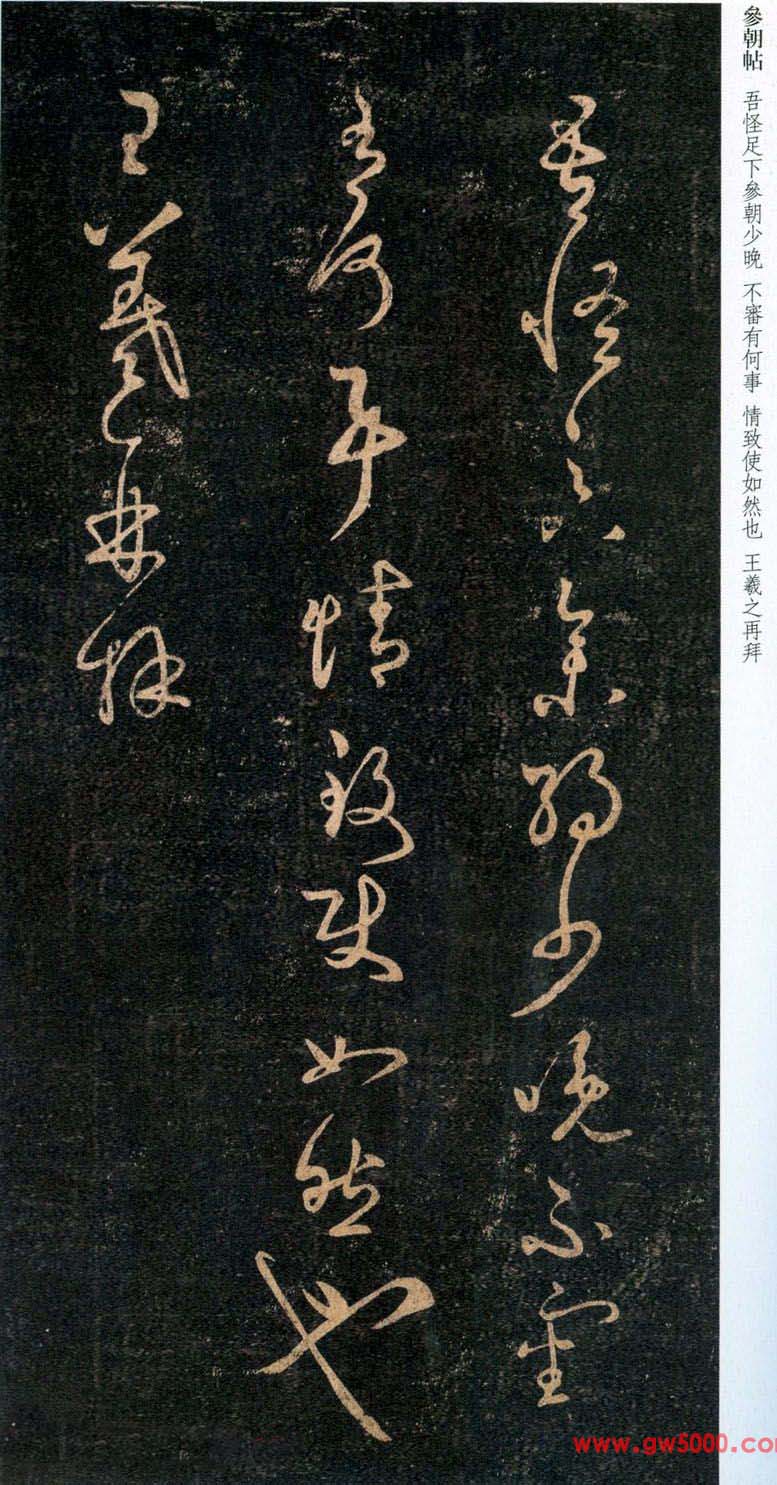 參朝帖 吾怪足下參朝少晚 不審有何事 情致使如然也 王羲之再拜
吾怪足下參朝少晚不審
有何事情致使如然也
王羲之再拜
www.gw5000.com